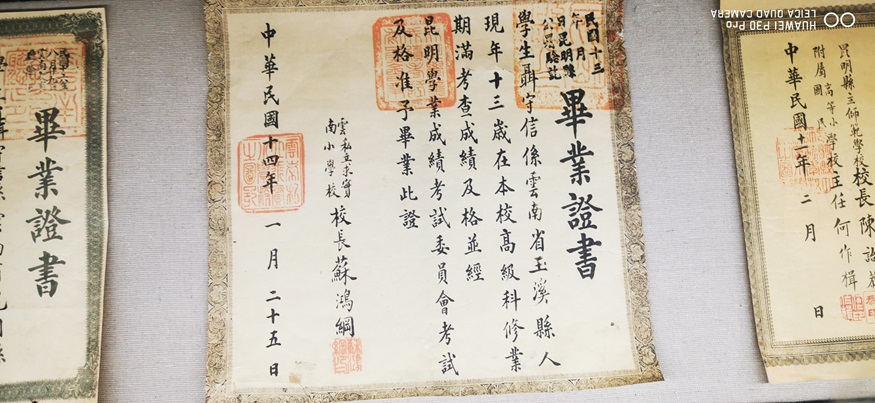 昆明縣立師範學校校長陳
附屬高等小國民學校主任何作楫
中華民國十一年二月 日
民國十三
年 月
日昆明縣
公署驗訖
畢業證書
學生聶守信係雲南省玉溪縣人
現年十三歲在本校高級科修業
期滿考查成績及格並經
昆明學業成績考試委員會考試
及格准予畢業此證
雲南私立求實小學校校長蘇鴻綱
中華民國十四年一月二十五日
畢業證書
HUAWEI P30 Pro
LEICA QUAD CAMERA